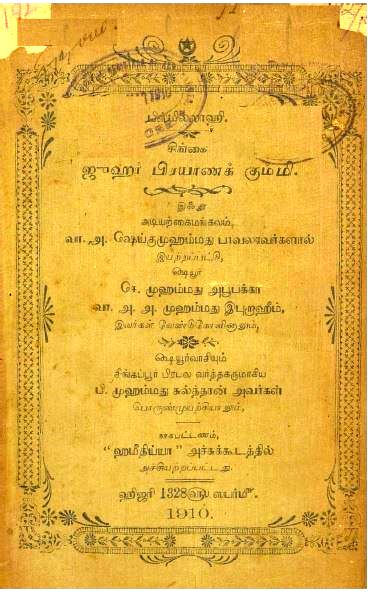 பிஸ்மில்லாஹி.
சிங்கை
ஜுஹூர் பிரயாணக் கும்மி.
இஃது
அடியற்கைமங்கலம்,
வா. அ. ஷெய்குமுஹம்மது பாவலரவர்களால்
இயற்றப்பட்டு,
ஷெயூர்
சே. முஹம்மது அபூபக்கர்
வா. அ. அ. முஹம்மது இபுறாஹீம்,
இவர்கள் வேண்டுகோளினாலும்,
ஷெயூர்வாசியும்
சிங்கப்பூர் பிரபல வர்த்தகருமாகிய
பீ. முஹம்மது சுல்த்தான் அவர்கள்
பொருண்முயற்சியாலும்,
நாகபட்டணம்,
"ஹமீதிய்யா" அச்சுக்கூடத்தில்
அச்சியற்றப்பட்டது.
ஹிஜரி 1328
1910.